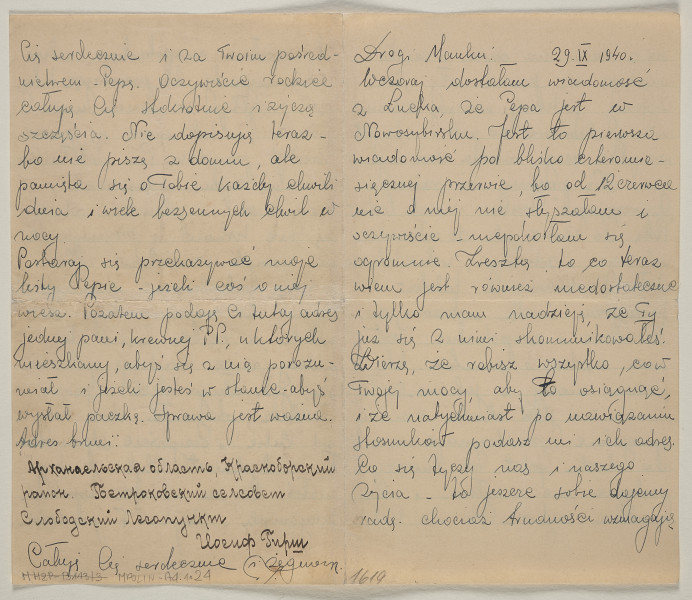 Drogi Maniu: 29.IX 1940.
Wczoraj dostałam wiadomość
z Łucka, że Pepa jest w
Nowosybirsku. Jest to pierwsza
wiadomość po blisko czteromie-
sięcznej przerwie, bo od 12 czerwca
nic o niej nie słyszałam i
oczywiście - niepokoiłam się
ogromnie. Zresztą, to co teraz
wiem jest również niedostateczne
i tylko mam nadzieję, że Ty
już się z nimi skomunikowałeś.
Wierzę, że robisz wszystko, co w
Twojej mocy, aby to osiągnąć,
i że natychmiast po nawiązaniu
stosunków podasz mi ich adres.
Co się tyczy nas i naszego
życia - to jeszcze sobie dajemy
radę, chociaż trudności wzmagają
Cię serdecznie i za Twoim pośred-
nictwem - Pepę. Oczywiście rodzice
całują Cię stokrotnie i życzą
szczęścia. Nie dopisują teraz -
bo nie piszę z domu, ale
pamięta się o Tobie każdej chwili
dnia i wiele bezsennych chwil w
nocy.
Postaraj się przekazywać moje
listy Pepie jeżeli coś o niej
wiesz. Pozatem podaję Ci tutaj adres
jednej pani, krewnej P.P., u których
mieszkamy, abyś się z nią porozu-
miał i jeżeli jesteś w stanie - abyś
wysłał paczkę. Sprawa jest ważna.
Adres brzmi:
Архангельская область, Красноборский
район. Петроковский сельсовет
Слободский Лесопункт
Иосиф Гирш
Całuję Cię serdecznie
M.HZP-B143/3 MPOLIN-A4.1.24
1619